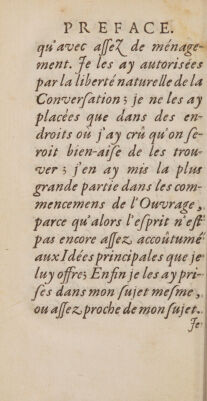 PREFACE.
qu'avec aſſeZ de ménage-
ment. Je les ay autorisées
par la liberté naturelle de la
Converſation; je ne les ay
placées que dans des en-
droits où j'ay crû qu'on ſe-
roit bien-aiſe de les trou-
ver; j'en ay mis la plus
grande partie dans les com-
mencemens de l'Ouvrage,
parce qu'alors l'eſprit n'eſt
pas encore aſſez accoûtumé
aux Idées principales que je
luy offre; Enfin je les ay pri-
ſes dans mon ſujet meſme,
ou aſſez proche de mon ſujet.
Je